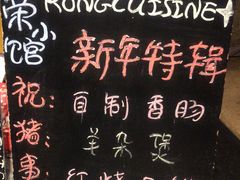 RONG CUISINE
荣小馆
新年特辑
祝: 自制香肠
猪: 羊杂煲
事: 红烧